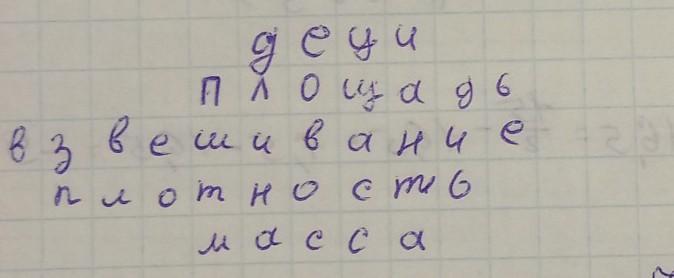 деци
площадь
взвешивание
плотность
масса